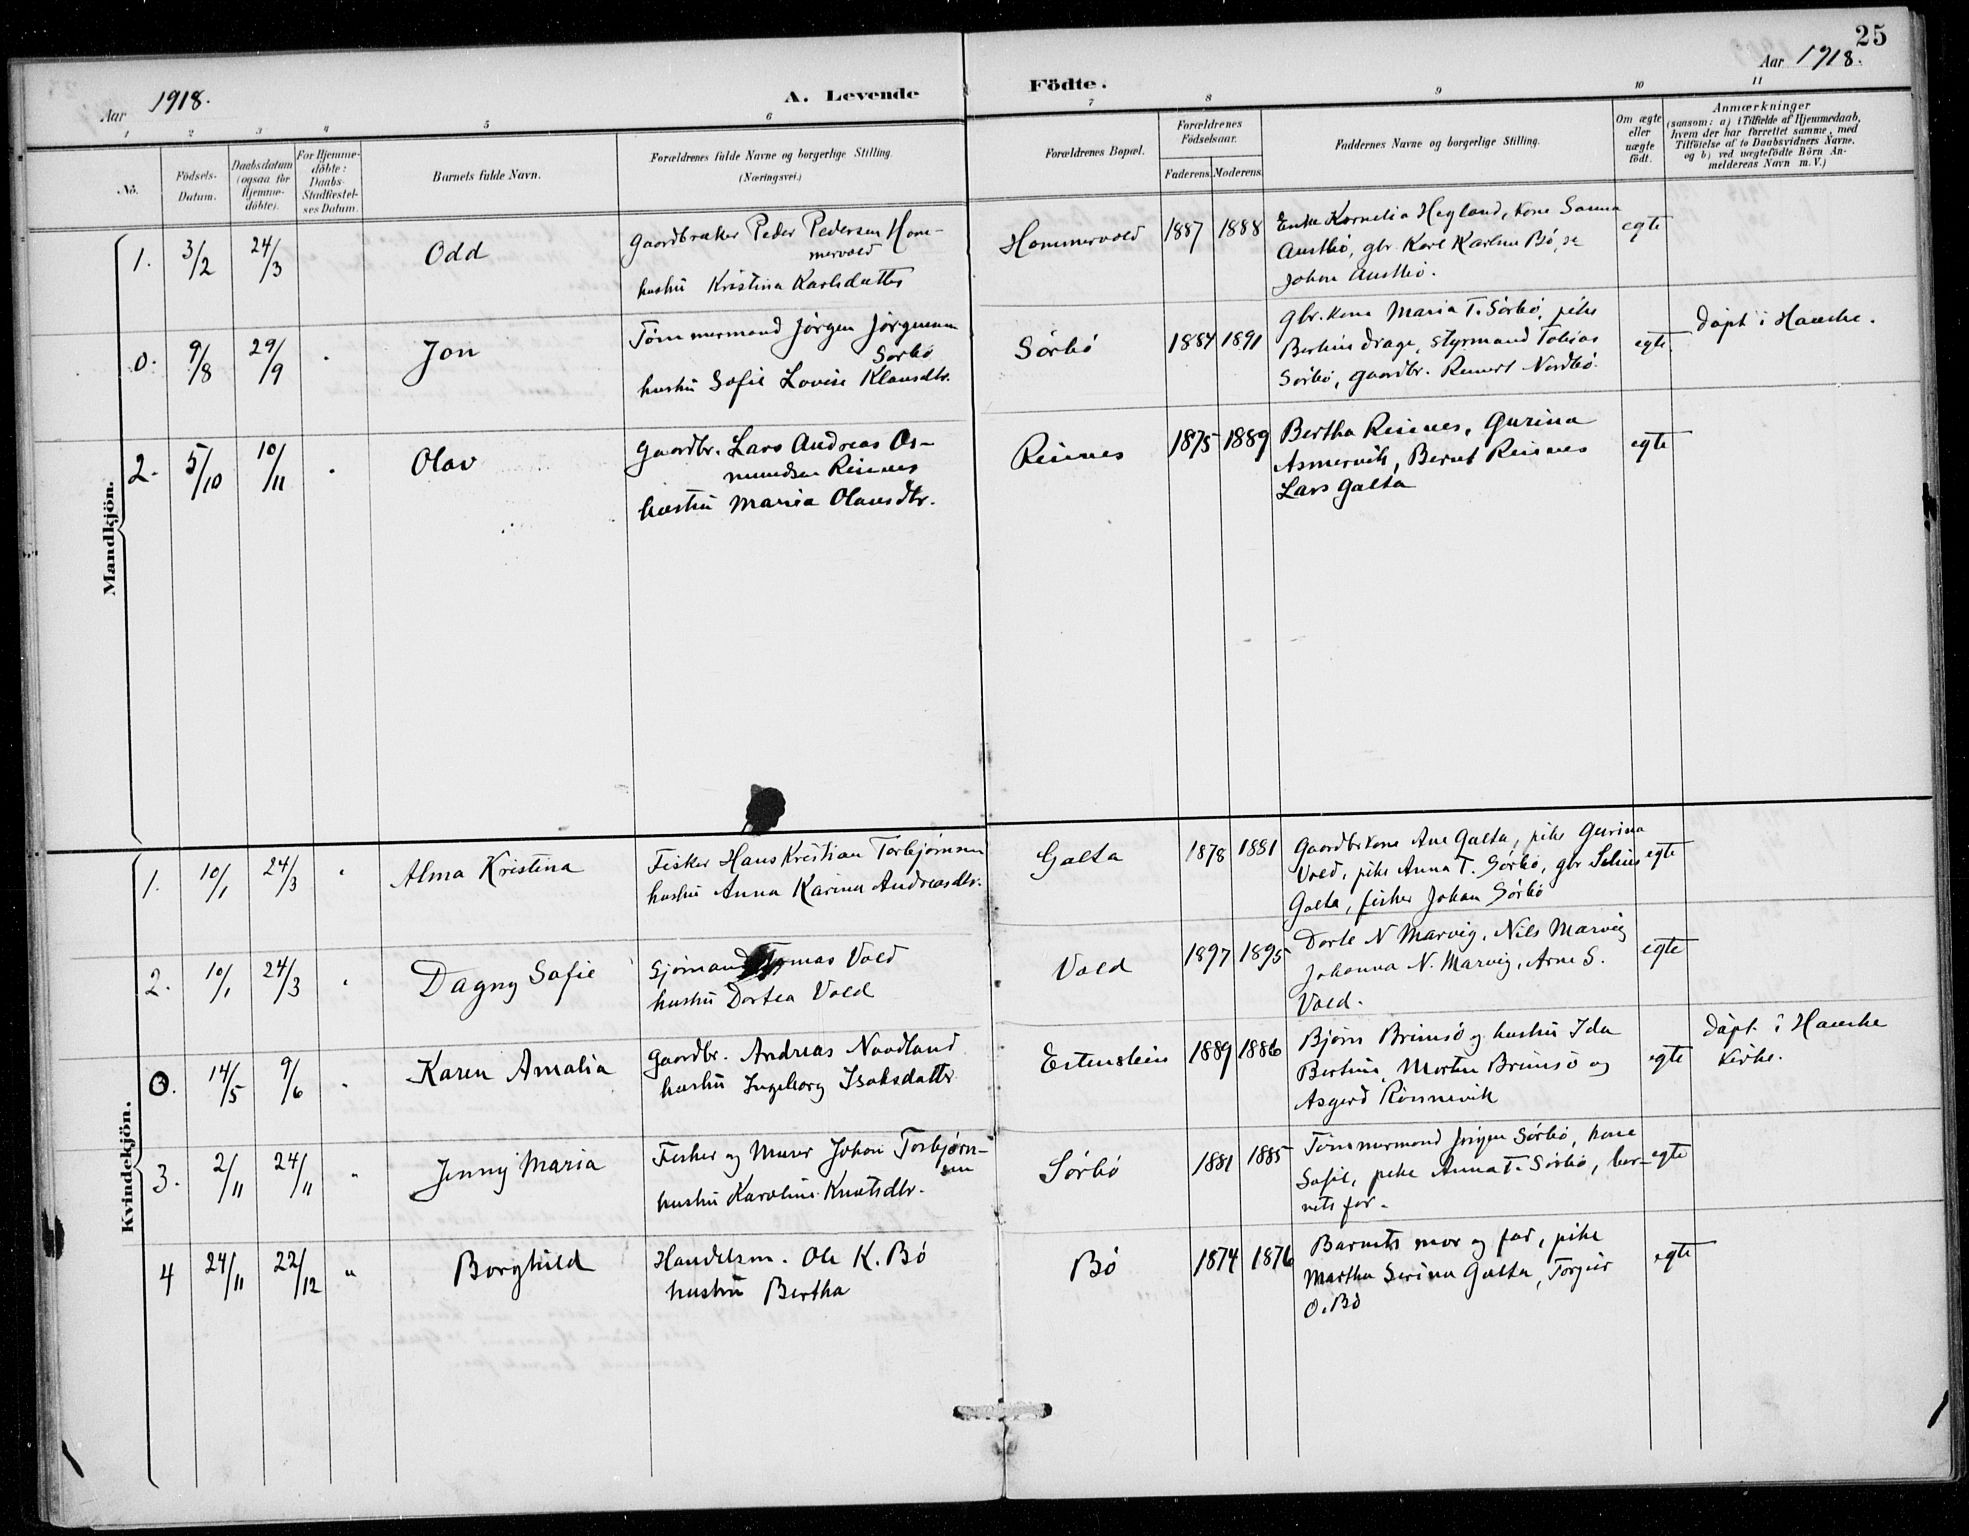 25
Aar 1918.
A. Levende Födte.
Aar 1918.
1 2 3 4 5 6 7 8 9 10 11
Nö.
Födsels-
Datum.
Daabsdatum
(ogsaa for
Hjemme-
döbte).
For Hjemme-
döbte:
Daabs-
Stadfæstel-
ses Datum.
Barnets fulde Navn.
Forældrenes fulde Navne og borgerlige Stilling.
(Næringsvei.)
Forældrenes Bopæl.
Forældrenes
Födselsaar.
Faderens. Moderens.
Faddernes Navne og borgerlige Stilling.
Om ægte
eller
uægte
födt.
Anmærkninger
(saasom: a) i Tilfælde af Hjemmedaab,
hvem der har forrettet samme, med
Tilföielse af to Daabsvidners Navne,
og b) ved uægtefödte Börn An-
melderens Navn m. V.)
Mandkjön.
1. 3/2 24/3 Odd
Gaardbruker Peder Pedersen Hom-
mervold
hustru Kristina Karlsdatter
Hommervold 1887 1888
Enke Kornelia Hegland, kone Sanna
Austbø, gbr. Karl Karlsen Bø,
Johan Austbø.
egte
0. 9/8 29/9 Jon
Tømmermand Jørgen Jørgensen
Sørbø
hustru Sofie Lovise Klausdtr.
Sørbö 1884 1891
Gbr. kone Maria T. Sørbø, pike
Bertine Drage, styrmand Tobias
Sørbø, gaardbr. Reinert Nordbø.
egte
døpt i Hauske.
2. 5/10 10/11 Olav
Gaardbr. Lars Andreas Os-
mundsen Reines
hustru Maria Olausdtr.
Reines 1875 1889
Bertha Reines, Gurina
Asmervik, Bernt Reines
Lars Galta
egte
Kvindekjön.
1. 10/1 24/3 " Alma Kristina
Fisker Hans Kristian Torbjørnsen
hustru Anna Karina Andreasdtr.
Galta 1878 1881
Gaardbrkone Ane Galta, pike Gurina
Vold, pike Anna T. Sørbø, gbr
Galta, fisker Johan Sørbø
egte
2. 10/1 24/3 Dagny Sofie
Sjømand Tomas Vold
hustru Dortea Vold
Vold 1897 1895
Dorte N Marvig, Nils Marvig
Johanna N. Marvig, Arne S.
Vold.
egte
0. 14/5 9/6 Karen Amalia
Gaardbr. Andreas Nordland
hustru Ingeborg Isaksdatter
Eltenstein 1889 1886
Bjørn Brimsø og hustru Ida
Bertine, Morten Brimsø og
Asgerd Rönnevik
egte
døpt i Hauske
Kirke.
3. 2/11 24/11 " Jenny Maria
Fisker og Murer Johan Torbjørn-
sen
hustru Karoline Knutsdtr.
Sørbö 1881 1885
Tømmermand Jørgen Sørbø, kone
Sofie, pike Anna T. Sørbø, bar-
nets far.
egte
4 24/11 22/12 " Borghild
Handelsm. Ole K. Bö
hustru Bertha
Bö 1874 1876
Barnets mor og far, pike
Martha Serina Galta, Torgeir
O. Bö
egte